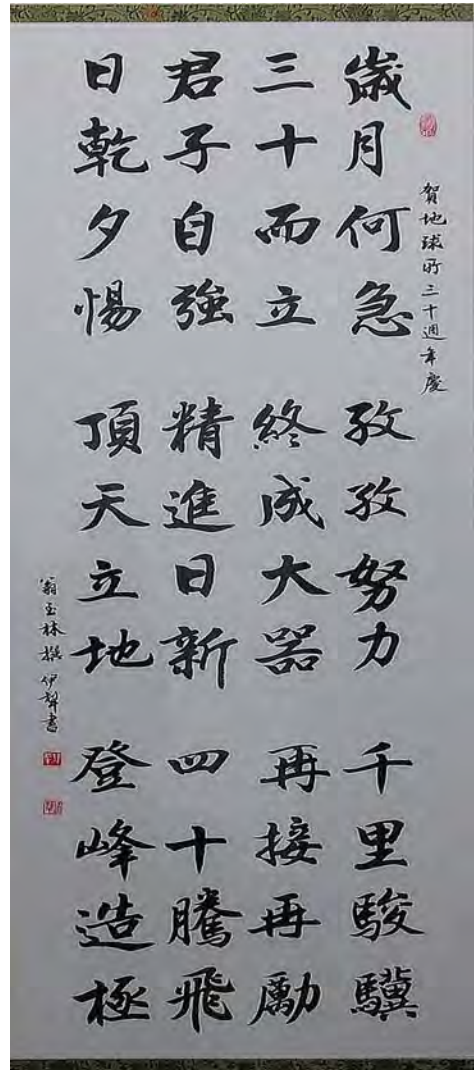 賀地球所三十週年慶
歲月何急 孜孜努力 千里駿驥
三十而立 終成大器 再接再勵
君子自強 精進日新 四十騰飛
日乾夕惕 頂天立地 登峰造極
翁玉林撰 伊聲書